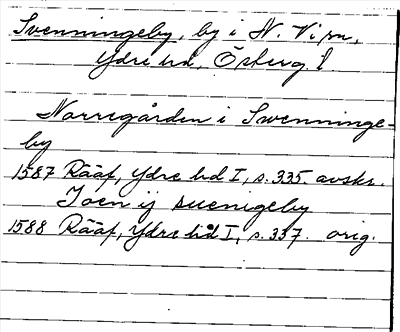 Svenningeby, by i N. Vi sn,
Ydre hd, Österg l.
Norregården i Swenninge-
by
1587 Rääf, Ydre hd I, s. 335. avskr.
Joen ij suenigeby
1588 Rääf, Ydre hd I, s. 337. orig.